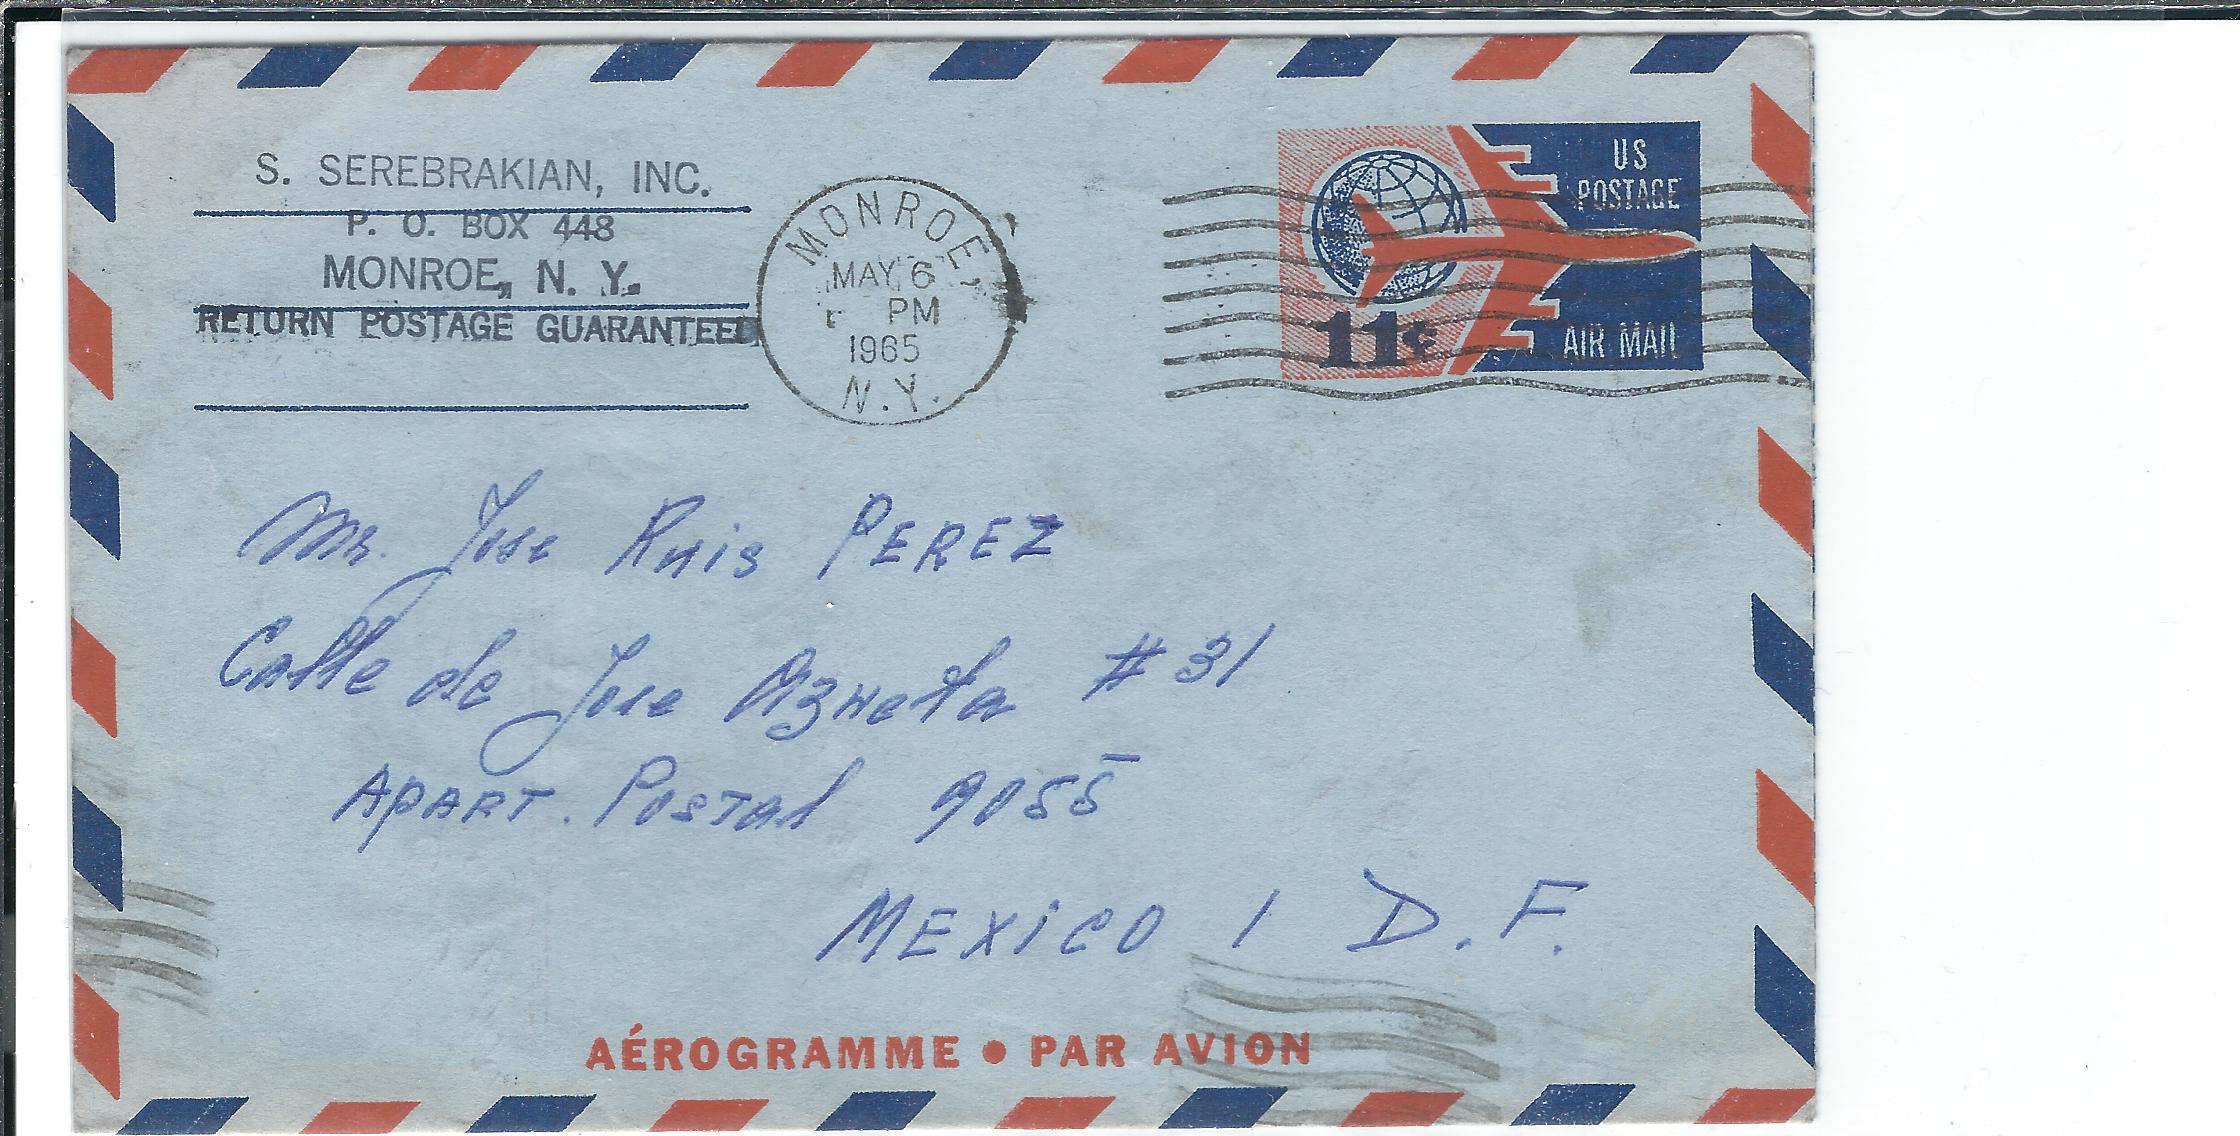 S. SEREBRAKIAN, INC.
P. O. BOX 448
MONROE, N. Y.
RETURN POSTAGE GUARANTEED
MONROE,
MAY 6
PM
1965
N.Y.
US
POSTAGE
11¢
AIR MAIL
Mr. Jose Ruis PEREZ
Calle de Jose Azueta # 31
APART. POSTAL 9055
MEXICO 1 D.F.
AÉROGRAMME • PAR AVION